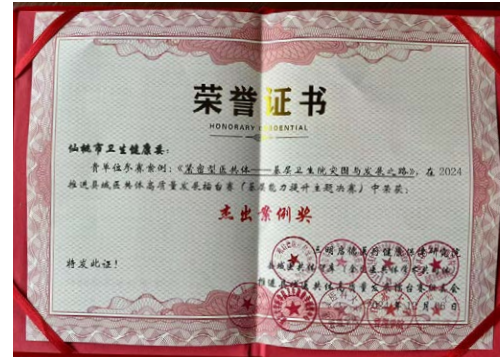 荣誉证书
HONORARY CREDENTIAL
仙桃市卫生健康委:
贵单位参赛案例:《紧密型医共体——基层卫生院突围与发展之路》,在 2024
推进县域医共体高质量发展擂台赛(基层能力提升主题决赛)中荣获:
杰出案例奖
特发此证!
推进县域医共体高质量发展擂台赛组委会